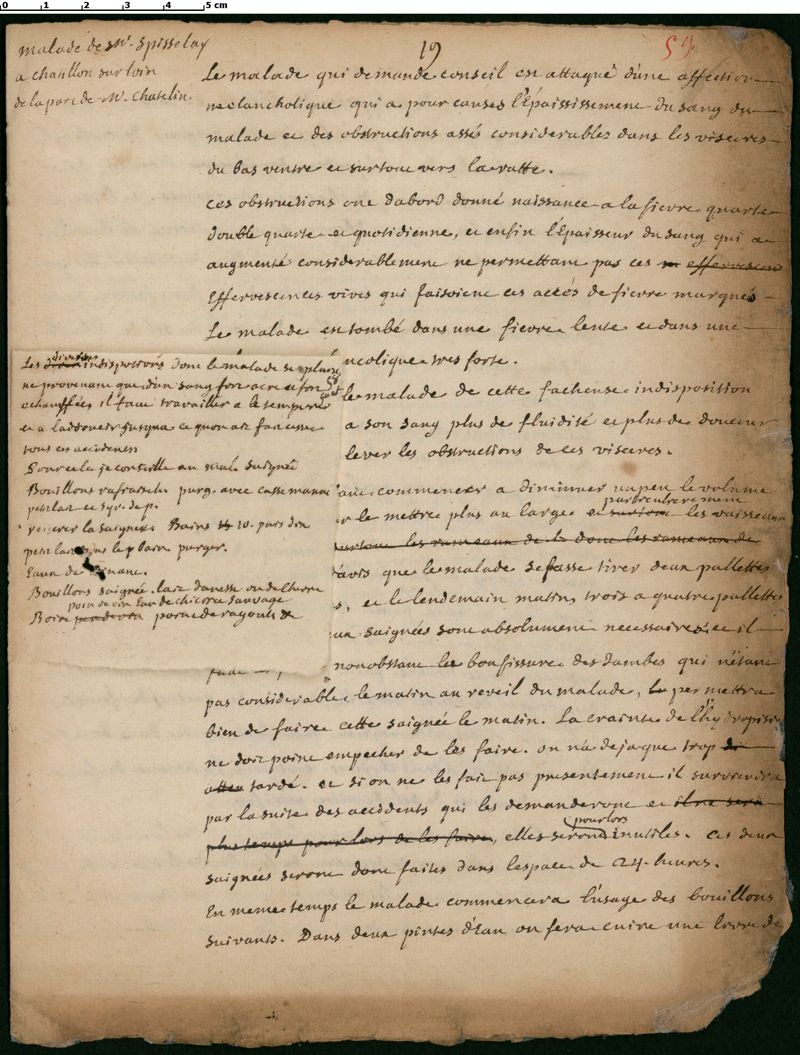 0 1 2 3 4 5 cm
19
59
malade de Mr. Spisselay
a chatillon sur loin
de la part de Mr. Chatelin.
Le malade qui demande conseil est attaqué d'une affection
melancholique qui a pour causes l'Épaississement du sang du
malade et des obstructions assés considerables dans les visceres
du bas ventre et surtout vers la ratte.
ces obstructions ont dabord donné naissance a la fievre quarte
double quarte et quotidienne, et enfin l'Épaisseur du sang qui a
augmenté considerablement ne permettant pas ces effervescen
Effervescences vives qui faisoient ces accés de fievre marqués
Le malade est tombé dans une fievre lente et dans une
ncolique tres forte.
le malade de cette facheuse indisposition
a son sang plus de fluidité et plus de douceur
lever les obstructions de ces visceres.
aut commencer a diminuer un peu le volume
particulierement
r le mettre plus au large et surtout les vaisseaux
surtout les rameaux de la dont les rameaux de
avis que le malade se fasse tirer deux pallettes
s, et le lendemain matin, trois a quatre pallettes
ux saignées sont absolument necessaires et il
faut nonobstant la bouffissure des jambes qui n'étant
pas considerable le matin au reveil du malade, permettra
bien de faire cette saignée le matin. La crainte de l'hydropisie
ne doit point empecher de les faire. on n'a deja que trop
tardé. et si on ne les fait pas presentement il surviendra
par la suite des accidents qui les demanderont et il ne sera
pourlors
plus temps pour lors de les faire, elles seront inutiles. ces deux
saignées seront donc faites dans l'espace de 24. heures.
En meme temps le malade commencera l'usage des bouillons
suivants. Dans deux pintes d'Eau on fera cuire une livre de
diverses
Les indispositions dont le malade se plaint
ne provenant que d'un sang fort acre et fort
echauffée, il faut travailler a le temperer
et a l'addoucir jusqua ce quon ait fait cesser
tous ces accidents
Pour cela je conseille au mala saignée
Bouillons rafraisch purg. avec casse manne
petit lait et syr. de p.
reiterer la saignée. Bains 10. puis din
petit lait le bain purger.
Eaux de
Bouillons saignée. lait danesse ou de chevre
point de vin Eau de chicorée sauvage
Boire point de ragouts